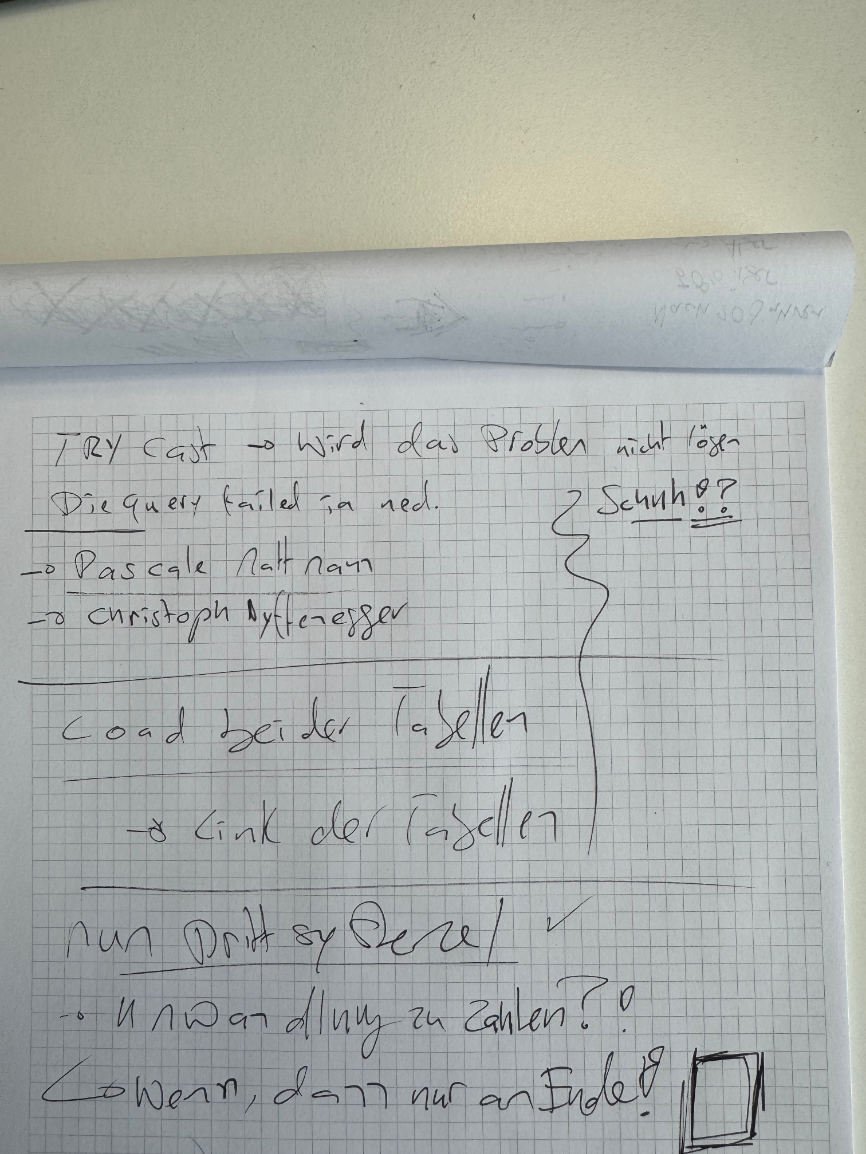 TRY Cast → Wird das Problem nicht lösen
Die query failed ja ned.
Schuh!?
→ Pascale
→ Christoph Nyffenegger
Load beider Tabellen
→ Link der Tabellen
nur Dritt sy ✓
→ Umwandlung zu Zahlen?!
↳ Wenn, dann nur am Ende!